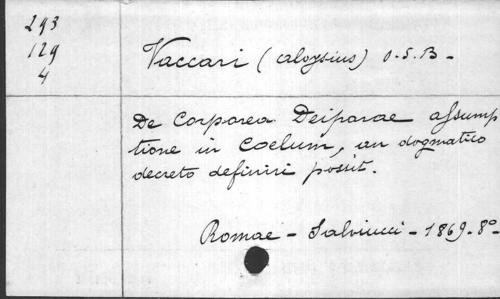 293
129
4
Vaccari (Aloysius) O.S.B-
De Corporea Deiparae assump
tione in Coelum, an dogmatico
decreto definiri possit.
Romae - Salviucci - 1869. 8º